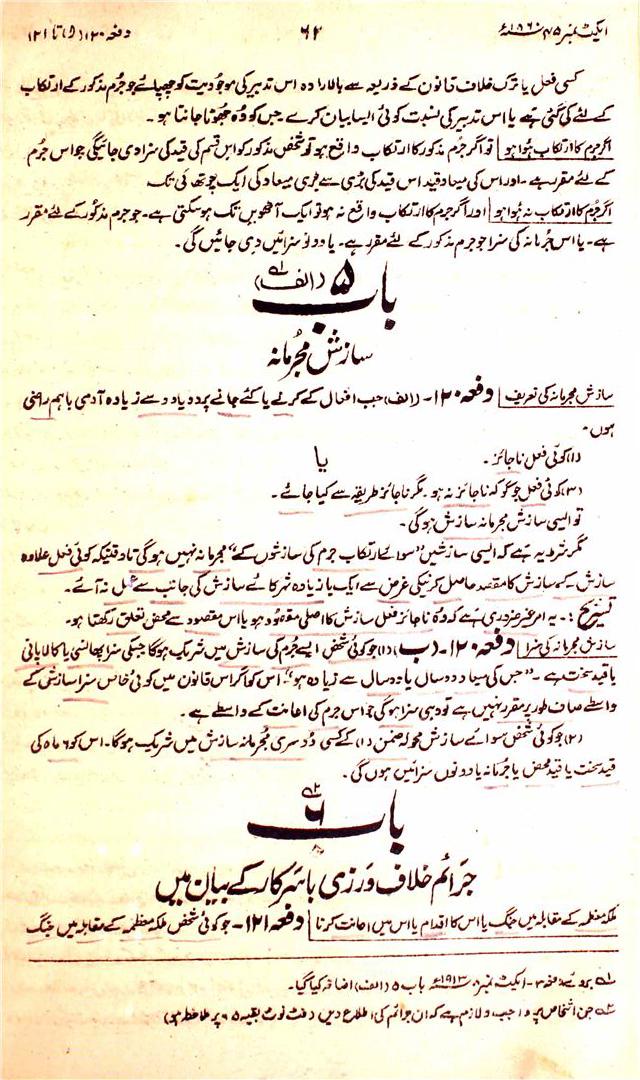 ایکٹ نمبر ۴۵ ۱۸۶۰ء ۶۲ دفعہ ۱۲۰ (ا) تا ۱۲۱
کسی فعل یا ترک خلاف قانون کے ذریعہ سے بالارادہ اس تدبیر کی موجودیت کو چھپائے جو جرم مذکور کے ارتکاب
کے لئے کی گئی ہے یا اس تدبیر کی نسبت کوئی ایسا بیان کرے جس کو وہ جھوٹا جانتا ہو۔
اگر جرم کا ارتکاب ہوا ہو تو اگر جرم مذکور کا ارتکاب واقع ہو تو شخص مذکور کو اس قسم کی قید کی سزا دی جائیگی جو اس جرم
کے لئے مقرر ہے۔ اور اس کی میعاد قید اس قید کی بڑی سے بڑی میعاد کی ایک چوتھائی تک
اگر جرم کا ارتکاب نہ ہوا ہو اور اگر جرم کا ارتکاب واقع نہ ہو تو ایک آٹھویں تک ہو سکتی ہے۔ جو جرم مذکور کے لئے مقرر
ہے۔ یا اس جرمانہ کی سزا جو جرم مذکور کے لئے مقرر ہے۔ یا دونو سزائیں دی جائیں گی۔
باب ۵ (الف) ؎۱
سازش مجرمانہ
سازش مجرمانہ کی تعریف دفعہ ۱۲۰۔ (الف) جب افعال کے کرنے یا کئے جانے پر دو یا دو سے زیادہ آدمی باہم راضی
ہوں۔
(۱) کوئی فعل ناجائز۔ یا
(۲) کوئی فعل جو گو کہ ناجائز نہ ہو۔ مگر ناجائز طریقہ سے کیا جائے۔
تو ایسی سازش مجرمانہ سازش ہوگی۔
مگر شرط یہ ہے کہ ایسی سازشیں "سوائے ارتکاب جرم کی سازشوں کے" مجرمانہ نہیں ہوگی تاوقتیکہ کوئی فعل علاوہ
سازش کے، سازش کا مقصد حاصل کرنیکی غرض سے ایک یا زیادہ شرکائے سازش کی جانب سے عمل نہ آئے۔
تشریح :۔ یہ امر غیر ضروری ہے کہ وہ ناجائز فعل سازش کا اصلی مقصود ہو یا اس مقصود سے محض تعلق رکھتا ہو۔
سازش مجرمانہ کی سزا دفعہ ۱۲۰۔ (ب) (۱) جو کوئی شخص ایسے جرم کی سازش میں شریک ہوگا جسکی سزا پھانسی یا کالا پانی
یا قید سخت ہے۔ "جس کی میعاد دو سال یا دو سال سے زیادہ ہو" اس کو اگر اس قانون میں کوئی خاص سزا سازش کے
واسطے صاف طور پر مقرر نہیں ہے تو وہی سزا ہوگی جو اس جرم کی اعانت کے واسطے ہے۔
(۲) جو کوئی شخص سوائے سازش محولہ ضمن (۱) کے کسی دوسری مجرمانہ سازش میں شریک ہوگا۔ اس کو ۶ ماہ کی
قید سخت یا قید محض یا جرمانہ یا دونوں سزائیں ہوں گی۔
باب ۶ ؎۲
جرائم خلاف ورزی با سرکار کے بیان میں
ملکہ معظمہ کے مقابلہ میں جنگ یا اس کا اقدام یا اس میں اعانت کرنا دفعہ ۱۲۱۔ جو کوئی شخص ملکہ معظمہ کے مقابلہ میں جنگ
؎۱ بروئے دفعہ ۳۔ ایکٹ نمبر ۸ ۱۹۱۳ء باب ۵ (الف) اضافہ کیا گیا۔
؎۲ جن اشخاص پر واجب و لازم ہے کہ ان جرائم کی اطلاع دیں (فٹ نوٹ بقیہ ۶۵ پر ملاحظہ ہو)